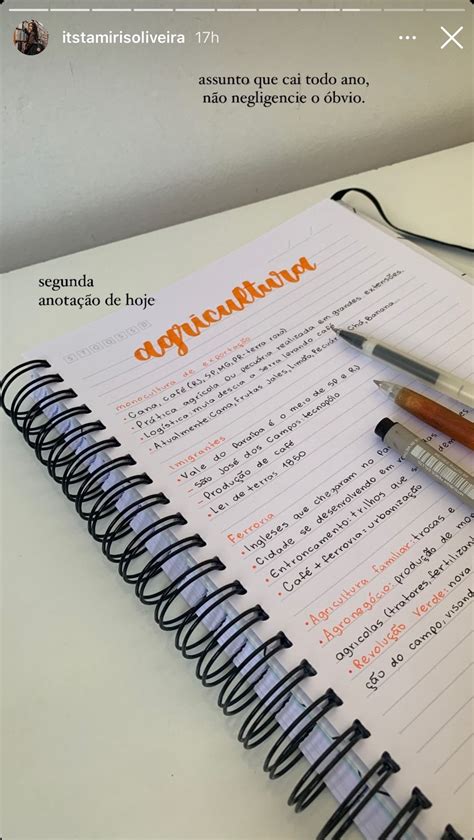 itstamirisoliveira 17h
assunto que cai todo ano,
não negligencie o óbvio.
segunda
anotação de hoje
agricultura
monocultura de exportação
• Cana, Café (RJ, SP, MG, PR-terra roxa)
• Prática agrícola ou pecuária realizada em grandes extensões.
• Logística: mula descia a serra levando café
• Atualmente: Cana, frutas
Imigrantes
• Vale do Paraíba é o meio de SP e RJ
- São José dos Campos: tecnopólo
- Produção de café
• Lei de terras 1850
Ferrovia
• Ingleses que chegaram no
• Cidade se desenvolvendo em
• Entroncamento: trilhos que
• Café + ferrovia: urbanização
• Agricultura Familiar: trocas e
• Agronegócio: produção de
agrícolas (tratores, fertilizan
• Revolução Verde: nova
ção do campo, visan